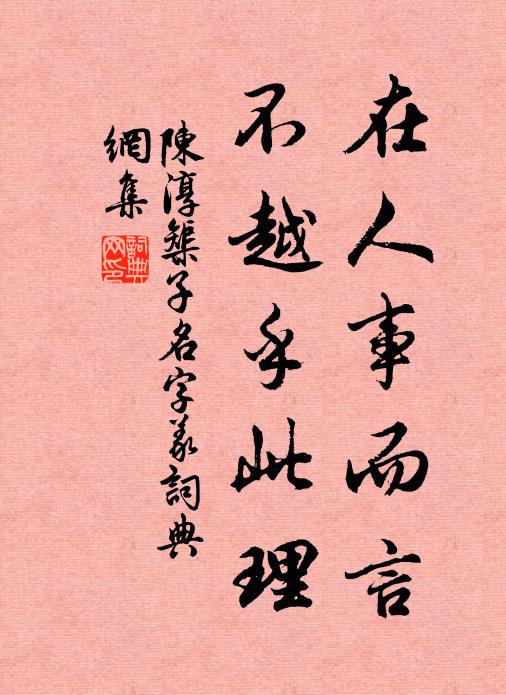 在人事而言
不越乎此理
陳淳築子名字義詞典
網集
詞典
网印